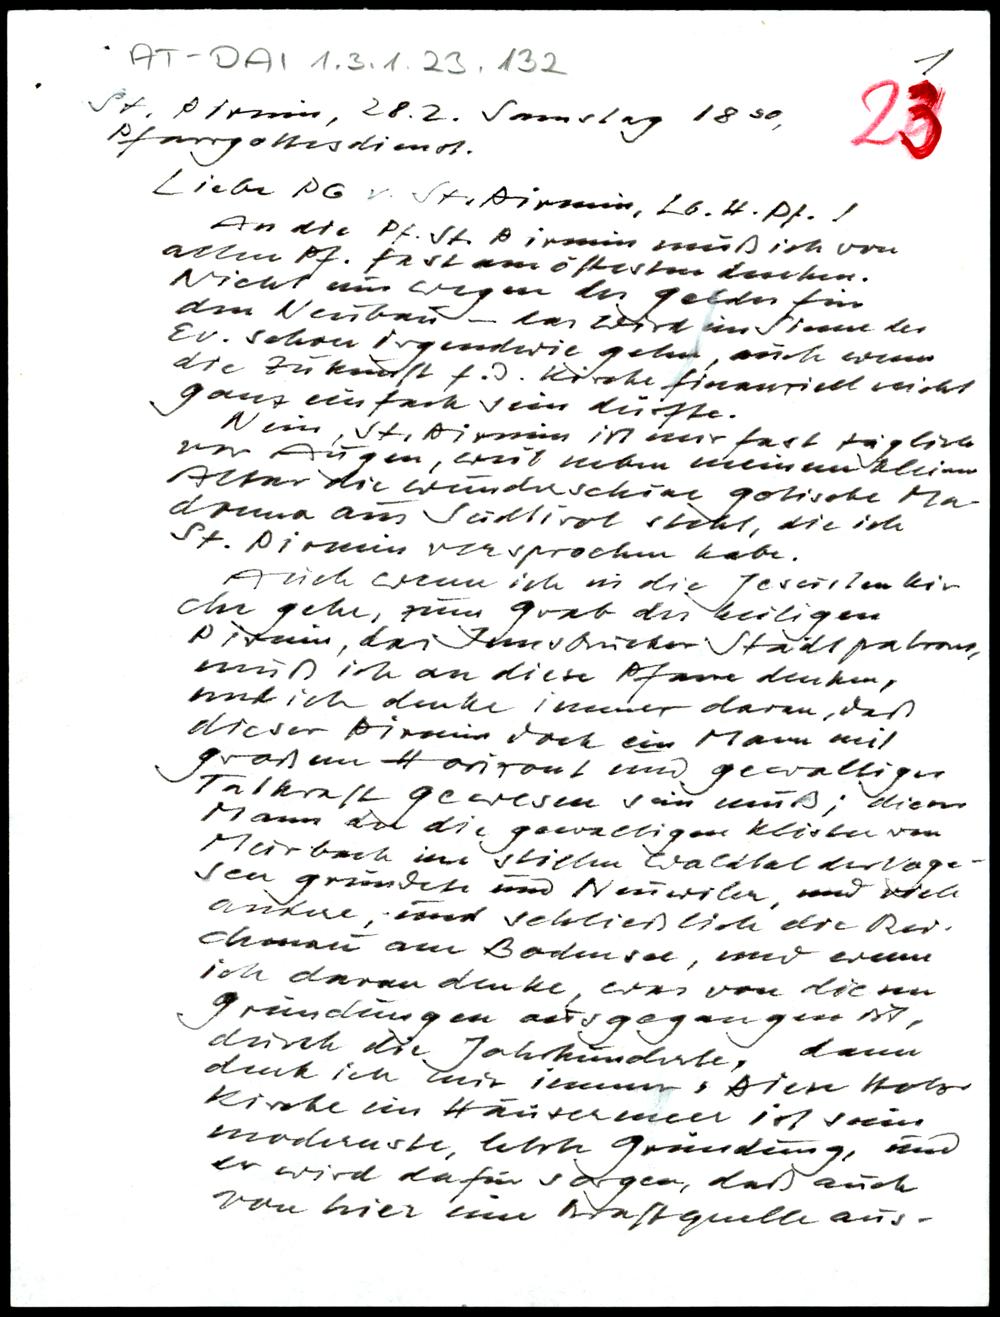 AT-DAI 1.3.1.23.132
1
23
St. Pirmin, 28.2. Samstag 18 30,
Pfarrgottesdienst.
Liebe PG v. St. Pirmin, Lb. H. Pf. !
An die Pf. St. Pirmin muß ich von
allen Pf. fast am öftesten denken.
Nicht nur wegen des Geldes für
den Neubau – das wird im Sinne des
Ev. schon irgendwie gehn, auch wenn
die Zukunft f. d. Kirche finanziell nicht
ganz einfach sein dürfte.
Nein, St. Pirmin ist mir fast täglich
vor Augen, weil neben meinem kleinen
Altar die wunderschöne gotische Ma-
donna aus Südtirol steht, die ich
St. Pirmin versprochen habe.
Auch wenn ich in die Jesuitenkir
che gehe, zum Grab des heiligen
Pirmin, des Innsbrucker Stadtpatrons,
muß ich an diese Pfarre denken,
und ich denke immer daran, daß
dieser Pirmin doch ein Mann mit
großem Horizont und gewaltiger
Tatkraft gewesen sein muß; dieser
Mann der die gewaltigen Klöster von
Murbach im stillen Waldtal der Voge-
sen gründete und Neuwiler, und viele
andere, und schließlich die Rei-
chenau am Bodensee, und wenn
ich daran denke, was von diesen
Gründungen ausgegangen ist,
durch die Jahrhunderte, dann
denk ich mir immer: Diese Holz
Kirche im Häusermeer ist seine
modernste, letzte Gründung, und
er wird dafür sorgen, daß auch
von hier eine Kraftquelle aus-